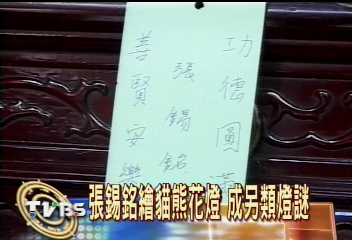 功德圓
張錫銘
善賢安樂
TVBS
張錫銘繪貓熊花燈 成另類燈謎